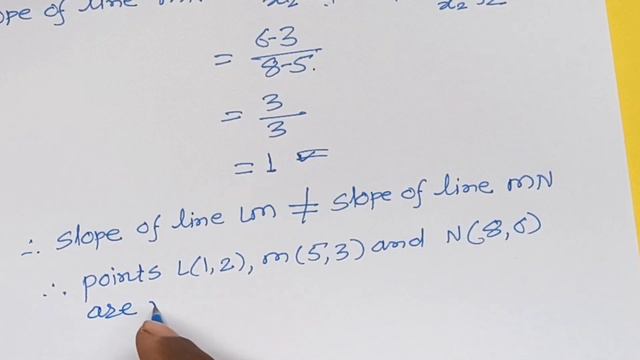 slope of line
= 6-3 / 8-5
= 3 / 3
= 1
∴ slope of line LM ≠ slope of line MN
∴ points L(1,2), m(5,3) and N(8,6)
are